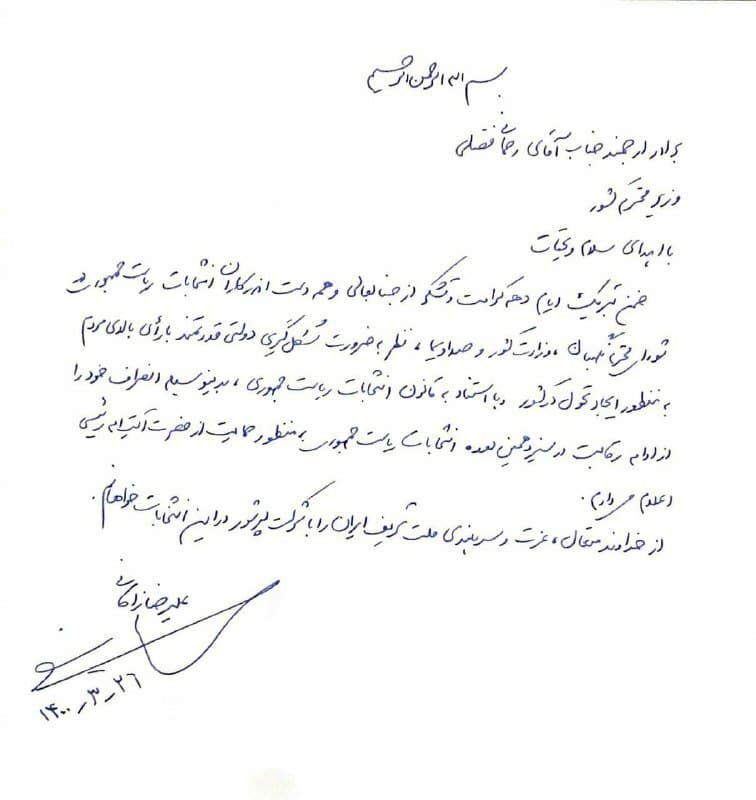 بسم الله الرحمن الرحیم
برادر ارجمند جناب آقای رحمانی فضلی
وزیر محترم کشور
با اهدای سلام و تحیات
ضمن تبریک ایام دهه کرامت و تشکر از جنابعالی و همه دست اندرکاران انتخابات ریاست جمهوری در
شورای محترم نگهبان، وزارت کشور و صداوسیما، نظر به ضرورت تشکل گیری دولتی قدرتمند با رأی بالای مردم
به منظور ایجاد تحول در کشور و با استناد به قانون انتخابات ریاست جمهوری، بدینوسیله انصراف خود را
از ادامه رقابت در سیزدهمین دوره انتخابات ریاست جمهوری به منظور حمایت از حضرت آیت اله رئیسی
اعلام می دارم.
از خداوند متعال، عزت و سربلندی ملت شریف ایران را با شرکت پرشور در این انتخابات خواهانم.
علیرضا زاکانی
۱۴۰۰ ر ۳ ر ۲۶